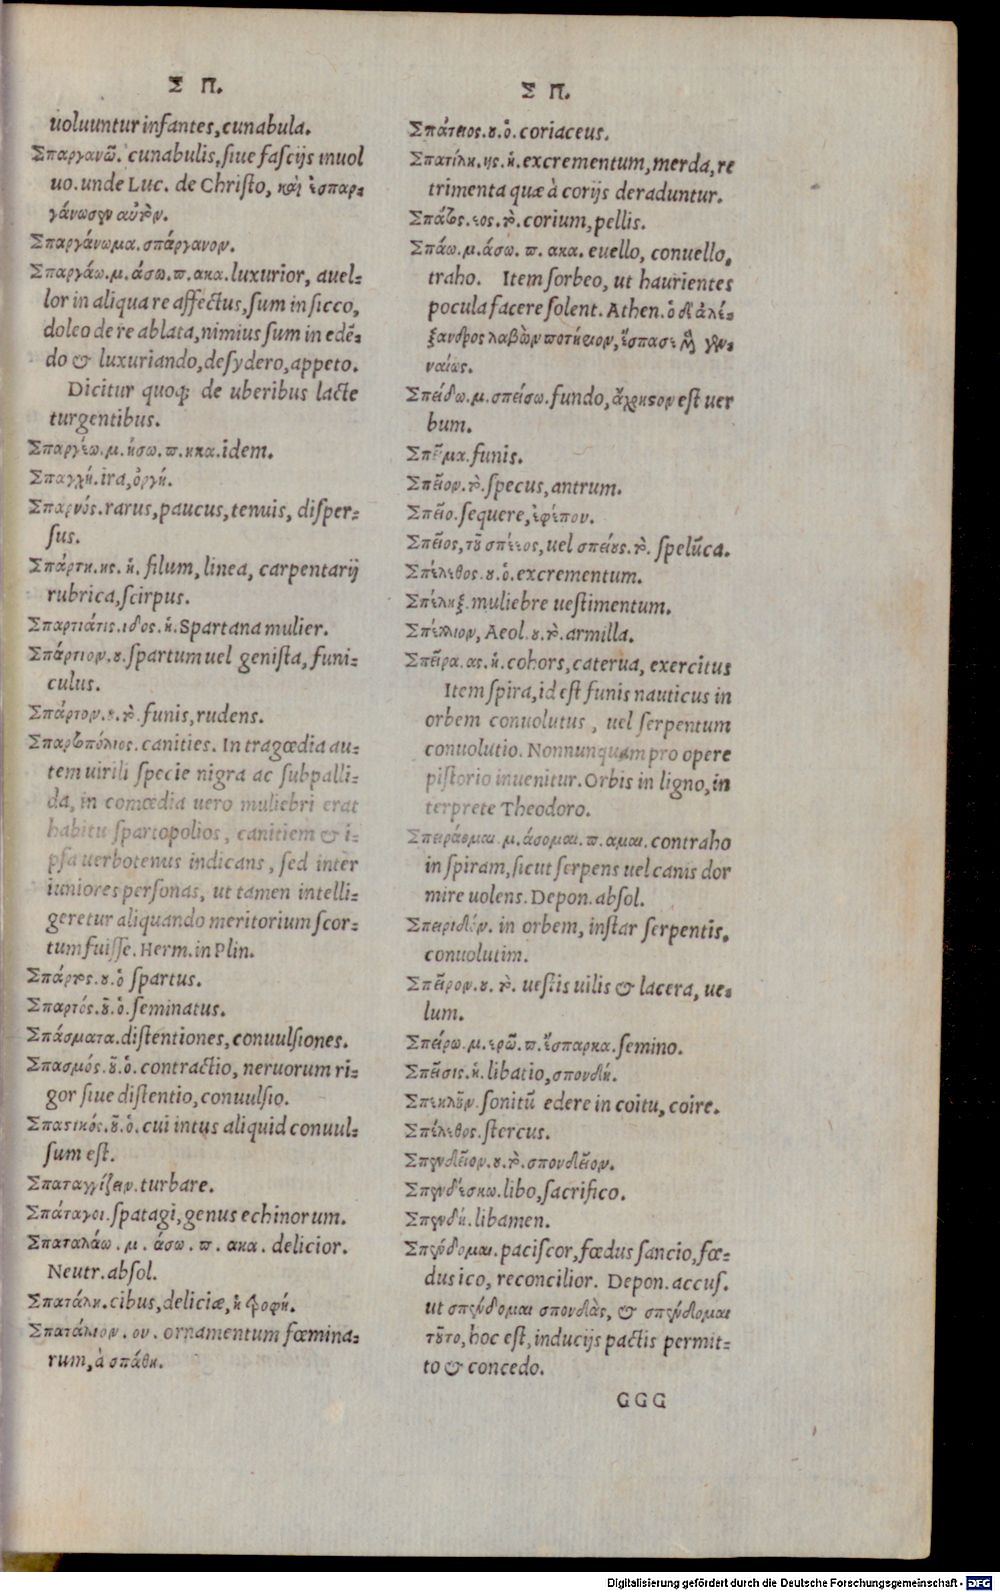 Σ Π.
uoluuntur infantes, cunabula.
Σπαργανῶ. cunabulis, siue fascijs inuol
uo. unde Luc. de Christo, καὶ ἐσπαρ-
γάνωσεν αὐτὸν.
Σπαργάνωμα. σπάργανον.
Σπαργάω. μ. άσω. π. ακα. luxurior, auel-
lor in aliqua re affectus, sum in sicco,
doleo de re ablata, nimius sum in edē-
do & luxuriando, desydero, appeto.
Dicitur quoq; de uberibus lacte
turgentibus.
Σπαργέω. μ. ήσω. π. ηκα. idem.
Σπαγχή. ira, ὀργή.
Σπαρνός. rarus, paucus, tenuis, disper-
sus.
Σπάρτη. ης. ἡ. filum, linea, carpentarij
rubrica, scirpus.
Σπαρτιάτις. ιδος. ἡ. Spartana mulier.
Σπάρτιον. ου. spartum uel genista, funi-
culus.
Σπάρτον. ου. τὸ. funis, rudens.
Σπαρτοπόλιος. canities. In tragœdia au-
tem uirili specie nigra ac subpalli-
da, in comœdia uero muliebri erat
habitu spartopolios, canitiem & i-
psa uerbotenus indicans, sed inter
iuniores personas, ut tamen intelli-
geretur aliquando meritorium scor-
tum fuisse. Herm. in Plin.
Σπάρτος. ου. ὁ spartus.
Σπαρτός. οῦ. ὁ. seminatus.
Σπάσματα. distentiones, conuulsiones.
Σπασμός. οῦ. ὁ. contractio, neruorum ri-
gor siue distentio, conuulsio.
Σπαστικός. οῦ. ὁ. cui intus aliquid conuul-
sum est.
Σπαταγγίζειν. turbare.
Σπάταγοι. spatagi, genus echinorum.
Σπαταλάω. μ. άσω. π. ακα. delicior.
Neutr. absol.
Σπατάλη. cibus, deliciæ, ἡ τροφή.
Σπατάλιον. ου. ornamentum fœmina-
rum, à σπάθη.
Σ Π.
Σπάτειος. ου. ὁ. coriaceus.
Σπατίλη. ης. ἡ. excrementum, merda, re
trimenta quæ à corijs deraduntur.
Σπάτος. εος. τὸ. corium, pellis.
Σπάω. μ. άσω. π. ακα. euello, conuello,
traho. Item sorbeo, ut haurientes
pocula facere solent. Athen. ὁ δὲ ἀλέ-
ξανδρος λαβὼν ποτήριον, ἔσπασε μὲν γεν-
ναίως.
Σπείδω. μ. σπείσω. fundo, ἄχρηστον est uer
bum.
Σπεῖμα. funis.
Σπεῖον. τὸ. specus, antrum.
Σπεῖο. sequere, ἐφέπου.
Σπεῖος, τοῦ σπέεος, uel σπείους. τὸ. spelūca.
Σπέλεθος. ου. ὁ. excrementum.
Σπέληξ. muliebre uestimentum.
Σπέλλιον, Aeol. ου. τὸ. armilla.
Σπεῖρα. ας. ἡ. cohors, caterua, exercitus
Item spira, id est funis nauticus in
orbem conuolutus, uel serpentum
conuolutio. Nonnunquam pro opere
pistorio inuenitur. Orbis in ligno, in
terprete Theodoro.
Σπειράομαι. μ. άσομαι. π. αμαι. contraho
in spiram, sicut serpens uel canis dor
mire uolens. Depon. absol.
Σπειρηδόν. in orbem, instar serpentis,
conuolutim.
Σπεῖρον. ου. τὸ. uestis uilis & lacera, ue-
lum.
Σπείρω. μ. ερῶ. π. ἔσπαρκα. semino.
Σπεῖσις. ἡ. libatio, σπονδή.
Σπεκλοῦν. sonitū edere in coitu, coire.
Σπέλεθος. stercus.
Σπενδεῖον. ου. τὸ. σπονδεῖον.
Σπενδέσκω. libo, sacrifico.
Σπενδή. libamen.
Σπένδομαι. paciscor, fœdus sancio, fœ-
dus ico, reconcilior. Depon. accus.
ut σπένδομαι σπονδὰς, & σπένδομαι
τοῦτο, hoc est, inducijs pactis permit-
to & concedo.
GGG
Digitalisierung gefördert durch die Deutsche Forschungsgemeinschaft - DFG